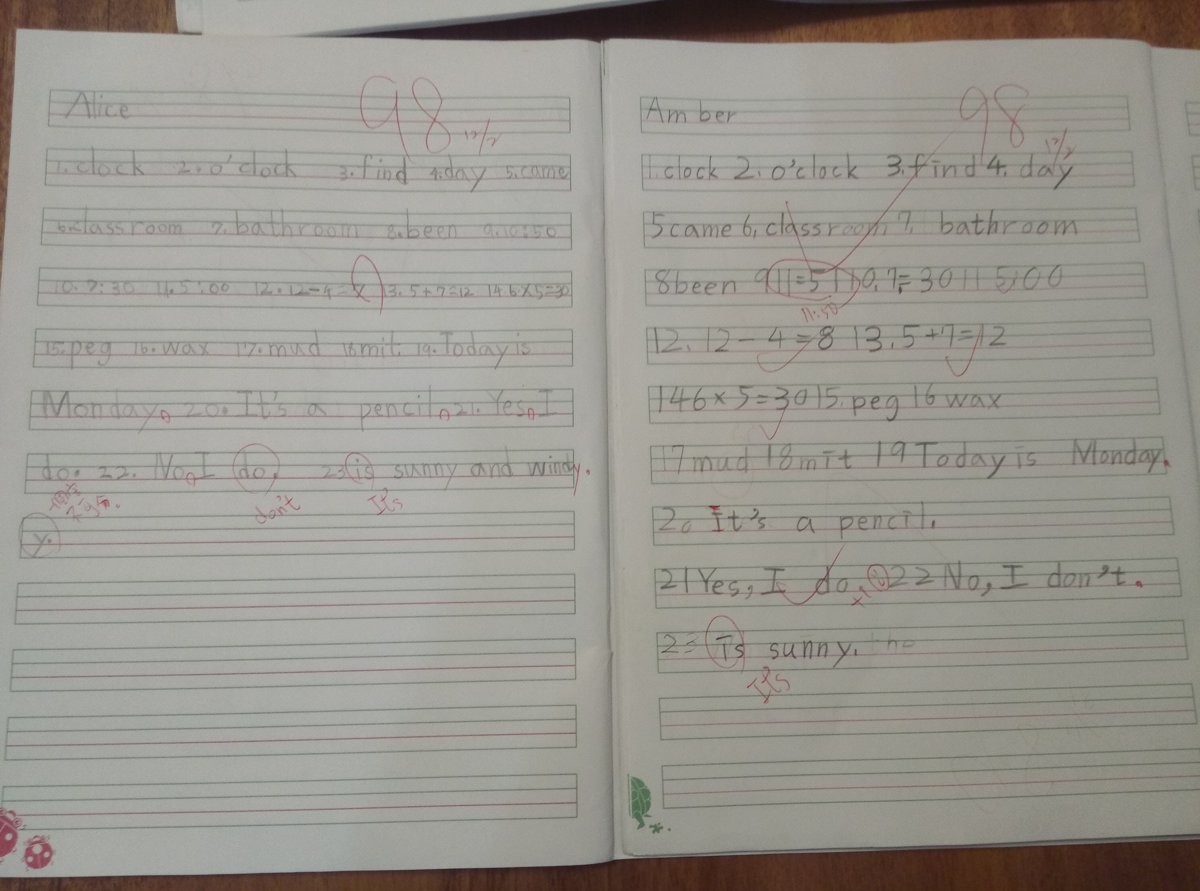 Alice
98
12/2
1. clock 2. o'clock 3. find 4. day 5. came
6. classroom 7. bathroom 8. been 9. 10:50
10. 7:30 11. 5:00 12. 12-4= 13. 5+7=12 14 6×5=30
15. peg 16. wax 17. mud 18 mit. 19. Today is
Monday. 20. It's a pencil. 21. Yes, I
do. 22. No, I do, 23 is sunny and windy.
don't It's
y.
Am ber
98
12/2
1. clock 2. o'clock 3. find 4. day
5 came 6, classroom 7, bathroom
8 been 9 11=51 10. 7=30 11 5:00
11:50
12. 12-4=8 13. 5+7=12
14 6×5=30 15. peg 16 wax
17 mud 18 mit 19 Today is Monday.
20 It's a pencil.
21 Yes, I do. 22 No, I don't.
23 is sunny.
It's